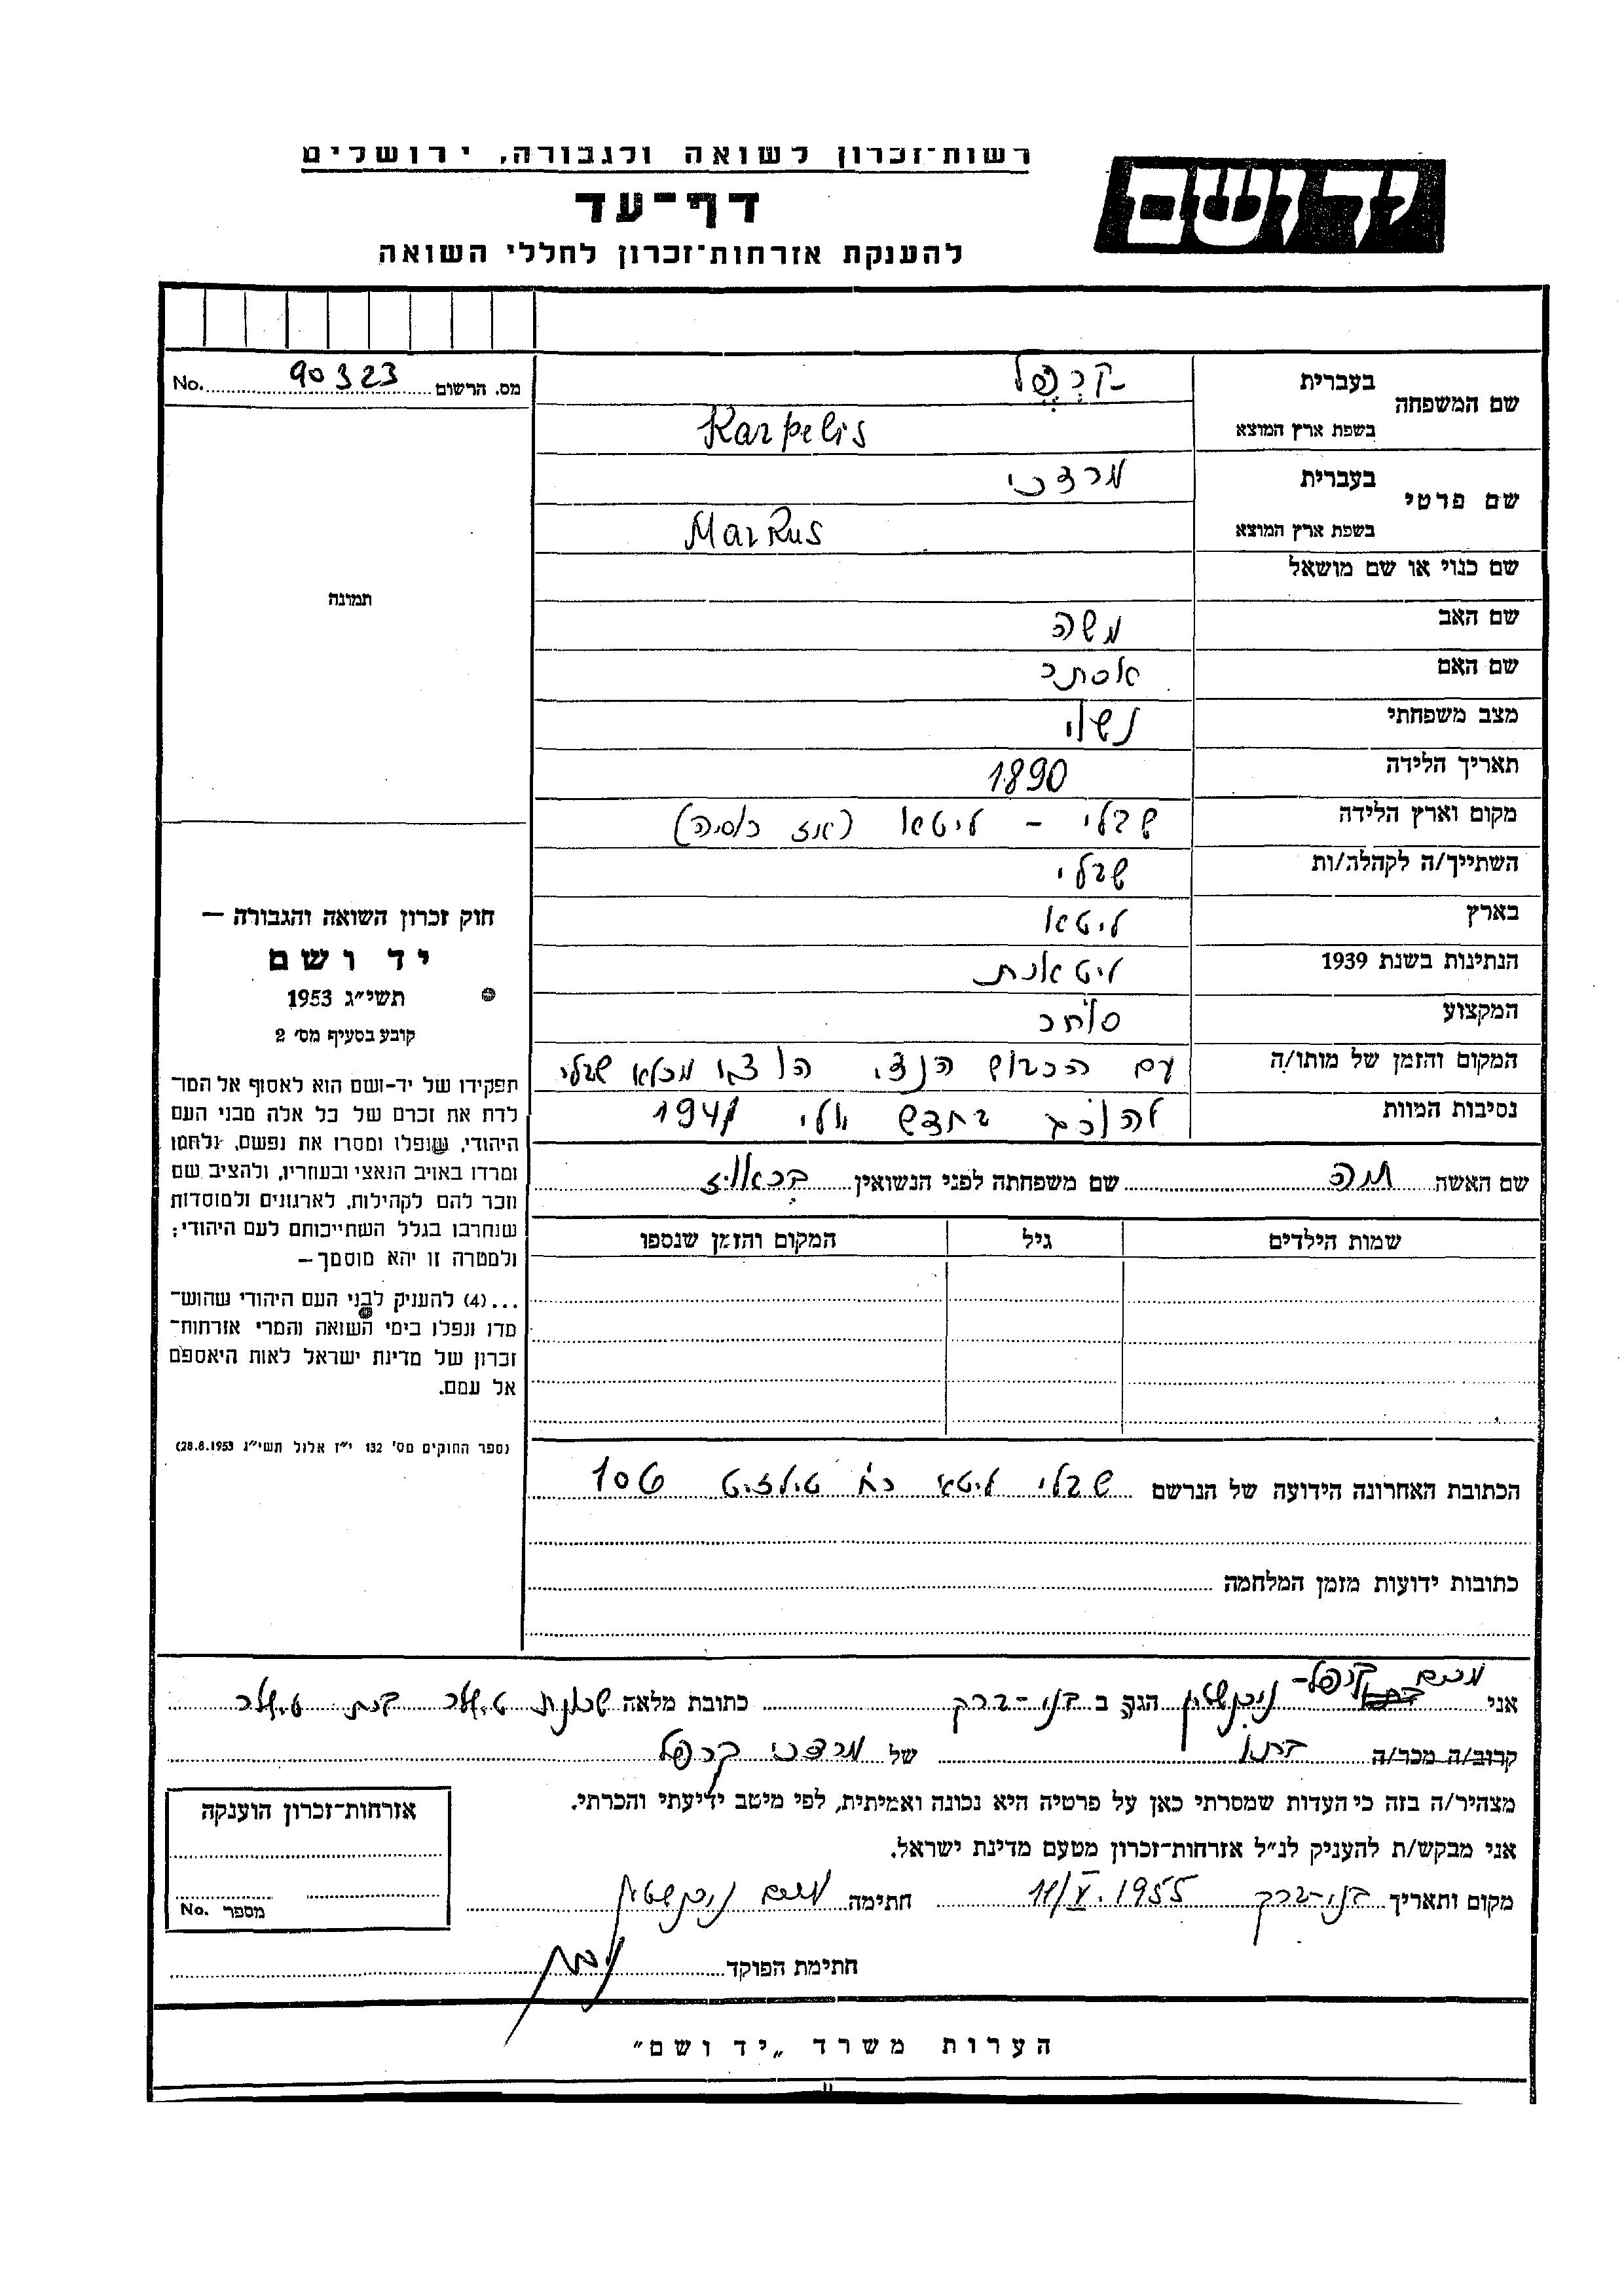 רשות־זכרון לשואה ולגבורה, ירושלים
יד ושם
דף־עד
להענקת אזרחות־זכרון לחללי השואה
מס. הרשום 90323 No.
שם המשפחה
בעברית קרפל
בשפת ארץ המוצא Karpelis
שם פרטי
בעברית מרדכי
בשפת ארץ המוצא Markus
שם כנוי או שם מושאל
שם האב משה
שם האם אסתר
מצב משפחתי נשוי
תאריך הלידה 1890
מקום וארץ הלידה שבלי – ליטא (אז רוסיה)
השתייך/ה לקהלה/ות שבלי
בארץ ליטא
הנתינות בשנת 1939 ליטאית
המקצוע סוחר
המקום והזמן של מותו/ה עם הכבוש הנצי הוצא מכלא שבלי
נסיבות המוות להורג בחדש יולי 1941
שם האשה חיה שם משפחתה לפני הנשואין
שמות הילדים גיל המקום והזמן שנספו
הכתובת האחרונה הידועה של הנרשם שבלי ליטא רח' טילזיט 106
כתובות ידועות מזמן המלחמה
תמונה
חוק זכרון השואה והגבורה —
יד ושם
תשי״ג 1953
קובע בסעיף מס׳ 2
תפקידו של יד-ושם הוא לאסוף אל המו־
לדת את זכרם של כל אלה מבני העם
היהודי, שנפלו ומסרו את נפשם, נלחמו
ומרדו באויב הנאצי ובעוזריו, ולהציב שם
וזכר להם לקהילות, לארגונים ולמוסדות
שנחרבו בגלל השתייכותם לעם היהודי;
ולמטרה זו יהא מוסמך —
...(4) להעניק לבני העם היהודי שהוש־
מדו ונפלו בימי השואה והמרי אזרחות־
זכרון של מדינת ישראל לאות היאספם
אל עמם.
(ספר החוקים מס׳ 132 י״ז אלול תשי״ג 28.8.1953)
אני מרים קרפל- הגר ב בני-ברק כתובת מלאה שכונת
קרוב/ה מכר/ה בתו של מרדכי קרפל
מצהיר/ה בזה כי העדות שמסרתי כאן על פרטיה היא נכונה ואמיתית, לפי מיטב ידיעתי והכרתי.
אני מבקש/ת להעניק לנ״ל אזרחות־זכרון מטעם מדינת ישראל.
מקום ותאריך בני-ברק 11/V.1955 חתימה מרים
חתימת הפוקד
אזרחות־זכרון הוענקה
מספר No.
הערות משרד „יד ושם״